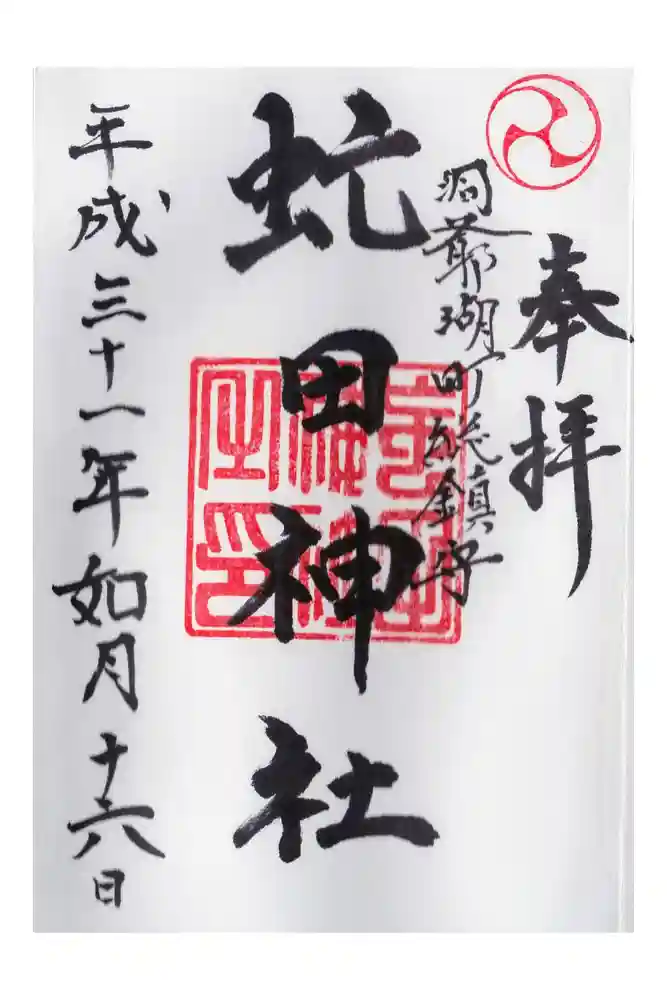 奉拝
洞爺湖町総鎮守
虻田神社
平成三十一年如月十六日